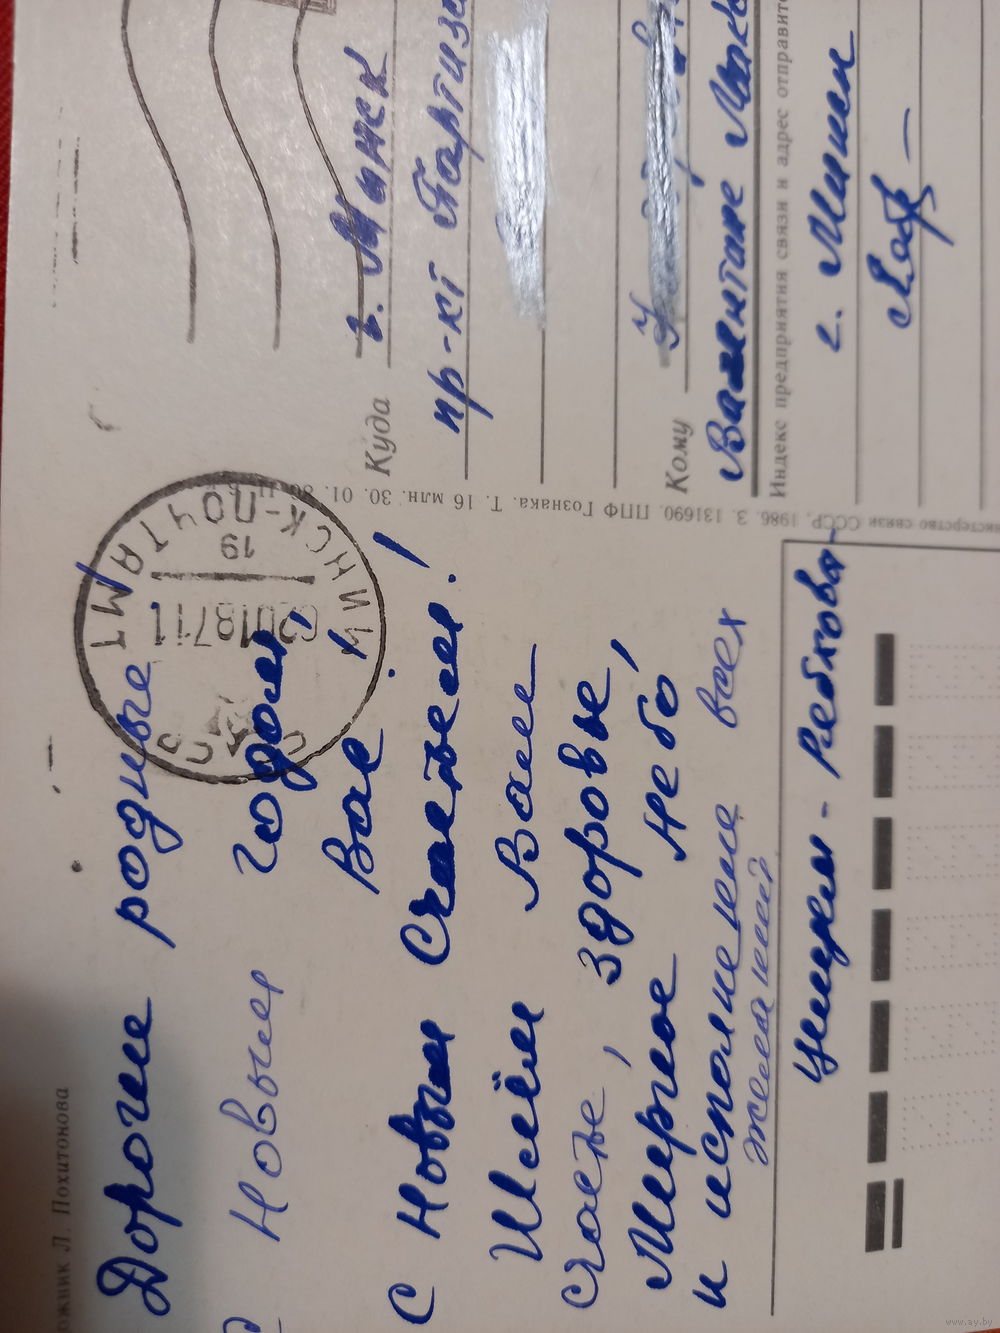 ожник Л. Похитонова
Дорогие родные,
Новым годом,
Вас!
с Новым Счастьем!
Шлём Вам
счастье, здоровье,
Мирное небо
и исполнение всех
желаний
МИНСК-ПОЧТАМТ
19
СССР
Министерство связи СССР, 1986. З. 131690. ППФ Гознака. Т. 16 млн. 30. 01. 86.
Куда г. Минск
пр-кт Партиза
Кому
Валентине
Индекс предприятия связи и адрес отправите
г. Минск
www.ay.by